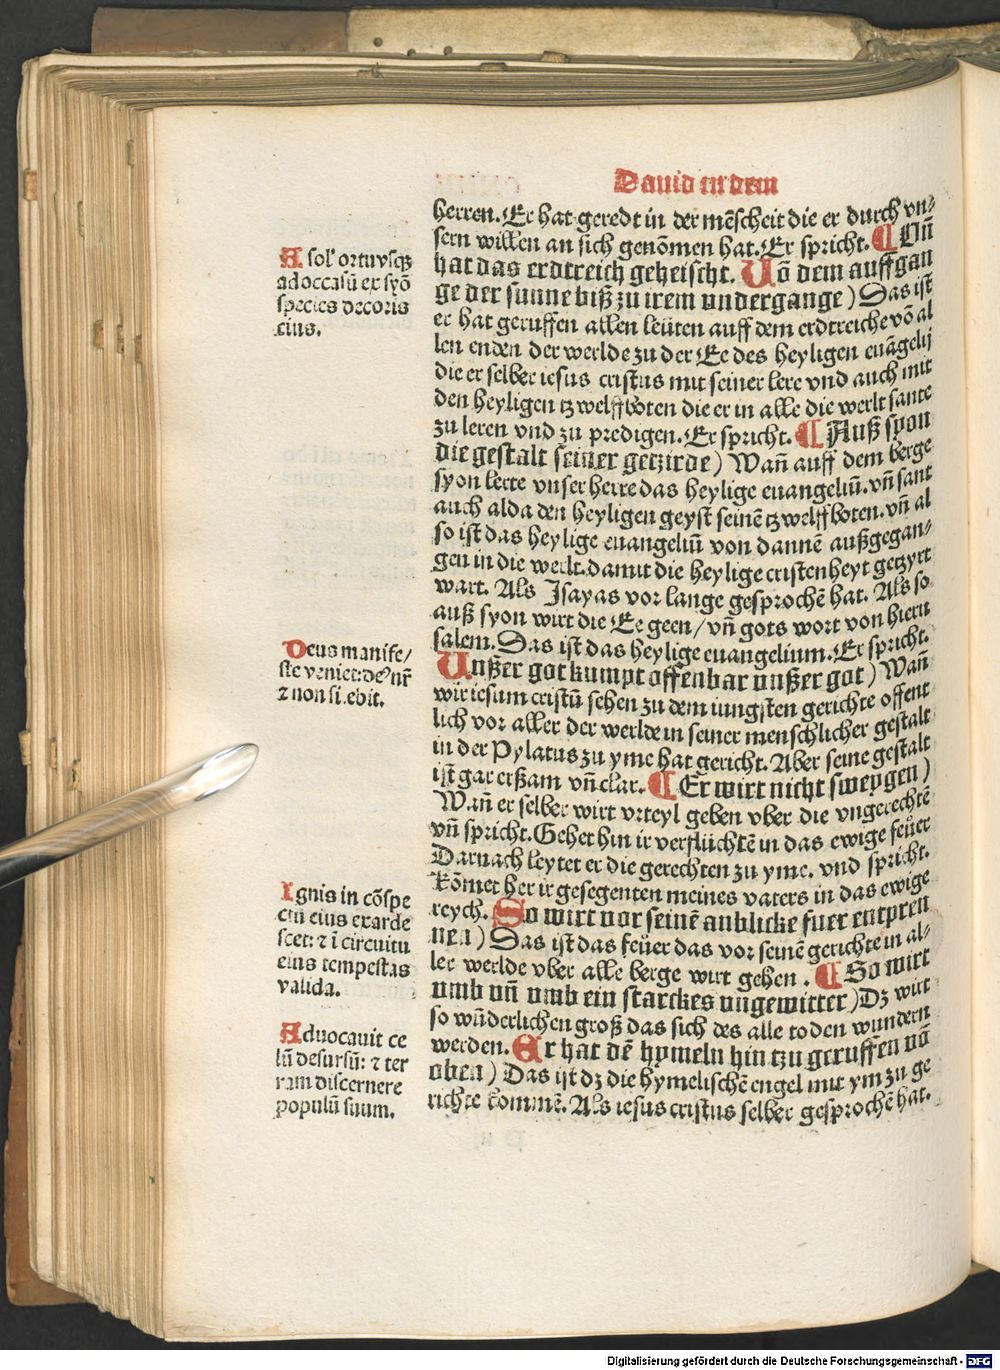 Dauid in dem
herren. Er hat geredt in der mēscheit die er durch vn⸗
sern willen an sich genōmen hat. Er spricht. ¶ Uñ
hat das erdtreich geheischt. Uō dem auffgan
ge der sunne biß zu irem undergange) Das ist
er hat geruffen allen leüten auff dem erdtreiche vō al
len enden der werlde zu der Ee des heyligen euāgelij
die er selber iesus cristus mit seiner lere vnd auch mit
den heyligen tzwelffboten die er in alle die werlt sante
zu leren vnd zu predigen. Er spricht. ¶ Auß syon
die gestalt seiner getzirde) Wañ auff dem berge
syon lerte vnser herre das heylige euangeliū. vñ sant
auch alda den heyligen geyst seinē tzwelffboten. vñ al
so ist das heylige euangeliū von dannē außgegan⸗
gen in die werlt. damit die heylige cristenheyt getzyrt
wart. Als Isayas vor lange gesprochē hat. Als so
auß syon wirt die Ee geen / vñ gots wort von hieru
salem. Das ist das heylige euangelium. Er spricht.
Unßer got kumpt offenbar unßer got) Wañ
wir iesum cristū sehen zu dem iungsten gerichte offent
lich vor aller der werlde in seiner menschlicher gestalt
in der Pylatus zu yme hat gericht. Aber seine gestalt
ist gar erßam vñ clar. ¶ Er wirt nicht sweygen)
Wañ er selber wirt vrteyl geben vber die vngerechtē
vñ spricht. Gehet hin ir verflüchtē in das ewige feüer
Darnach leytet er die gerechten zu yme. vnd spricht.
Kōmet her ir gesegenten meines vaters in das ewige
reych. So wirt vor seinē anblicke fuer entpren
nen) Das ist das feüer das vor seinē gerichte in al⸗
ler werlde vber alle berge wirt gehen. ¶ So wirt
umb uñ umb ein starckes ungewitter) Dz wirt
so wūderlichen groß das sich des alle toden wundern
werden. Er hat dē hymeln hin tzu geruffen vō
oben) Das ist dz die hymelischē engel mit ym zu ge
richte kommē. Als iesus cristus selber gesprochē hat.
A sol' ortu vsqȝ
ad occasū ex syō
species decoris
eius.
Deus manife/
ste veniet: deꝰ nr̄
⁊ non silebit.
Ignis in cōspe
ctu eius exarde
scet: ⁊ ī circuitu
eius tempestas
valida.
Aduocauit ce
lū desursū: ⁊ ter
ram discernere
populū suum.
Digitalisierung gefördert durch die Deutsche Forschungsgemeinschaft - DFG